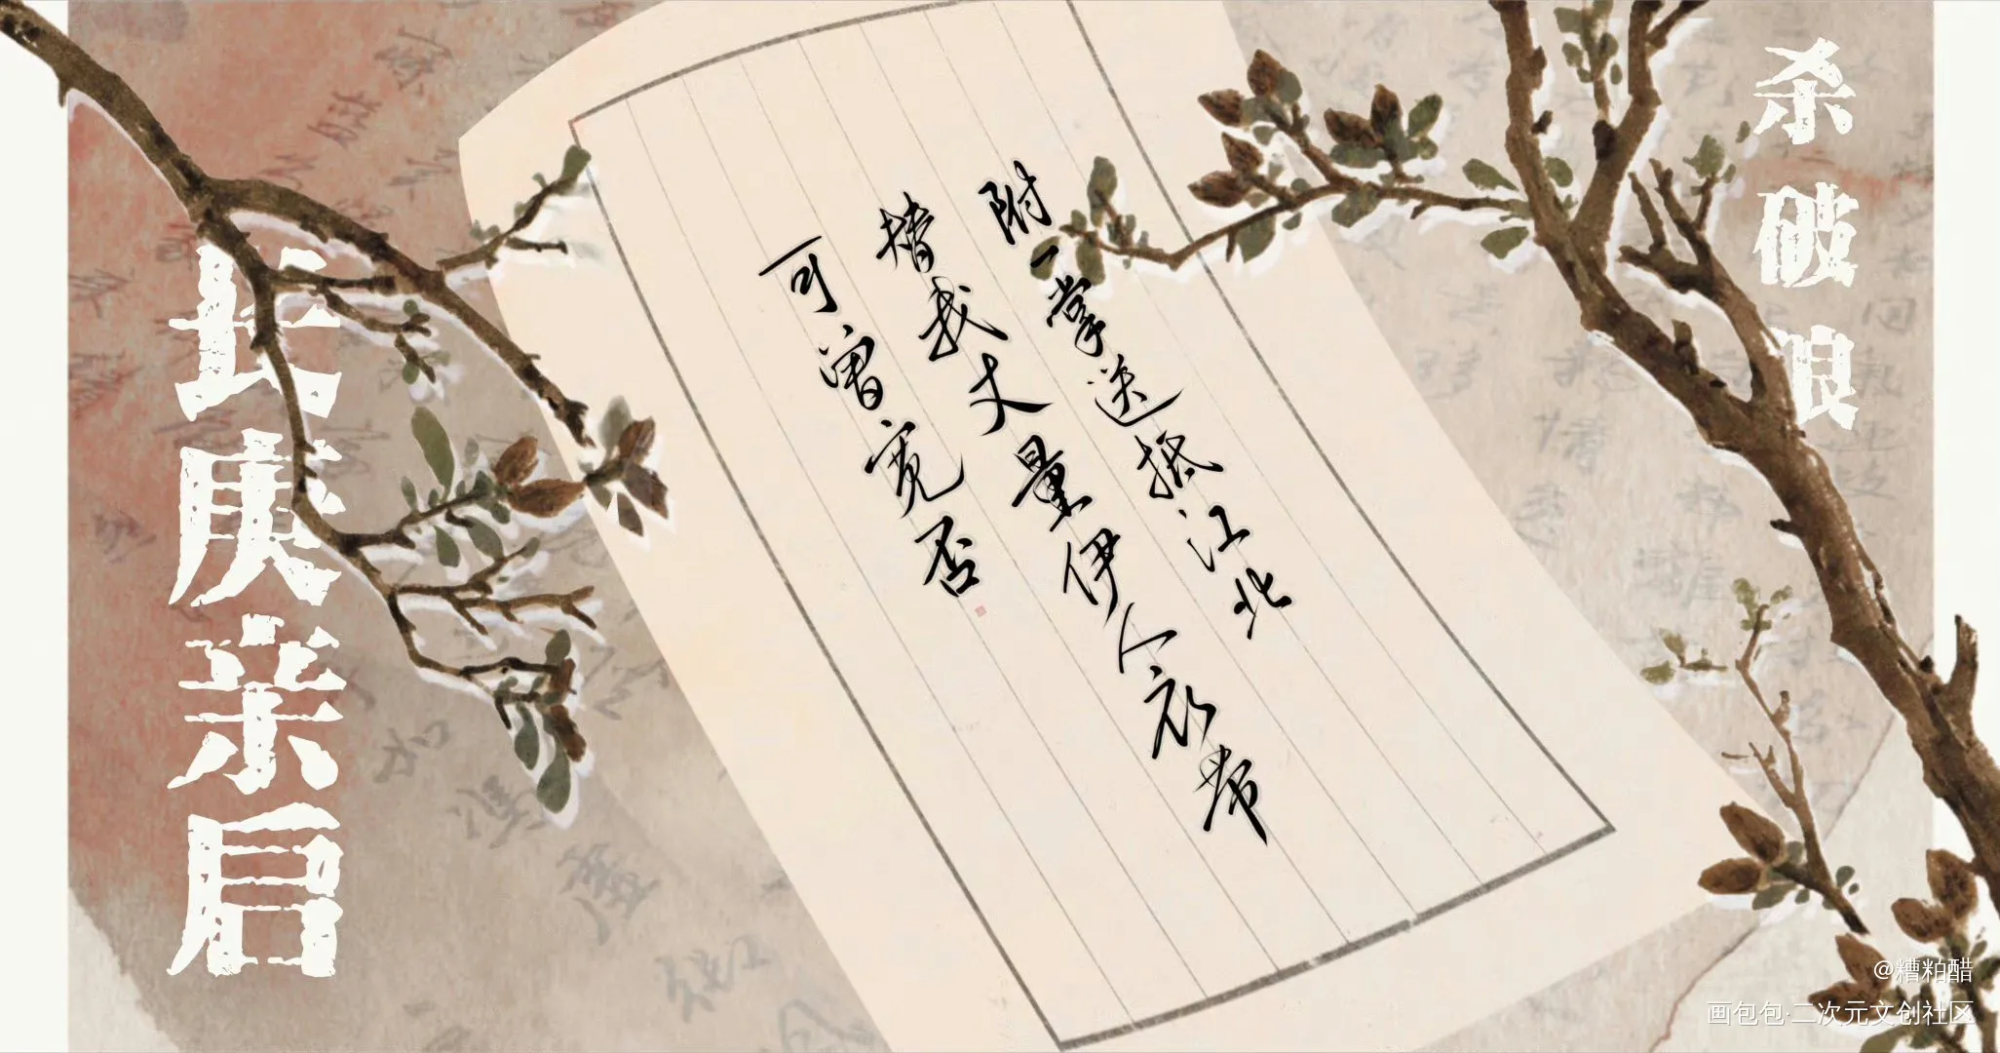 杀破狼
附一掌送抵江北
撘我丈量伊人衣带
可曾宽否
长庚亲启
@糟粕醋
画包包·二次元文创社区